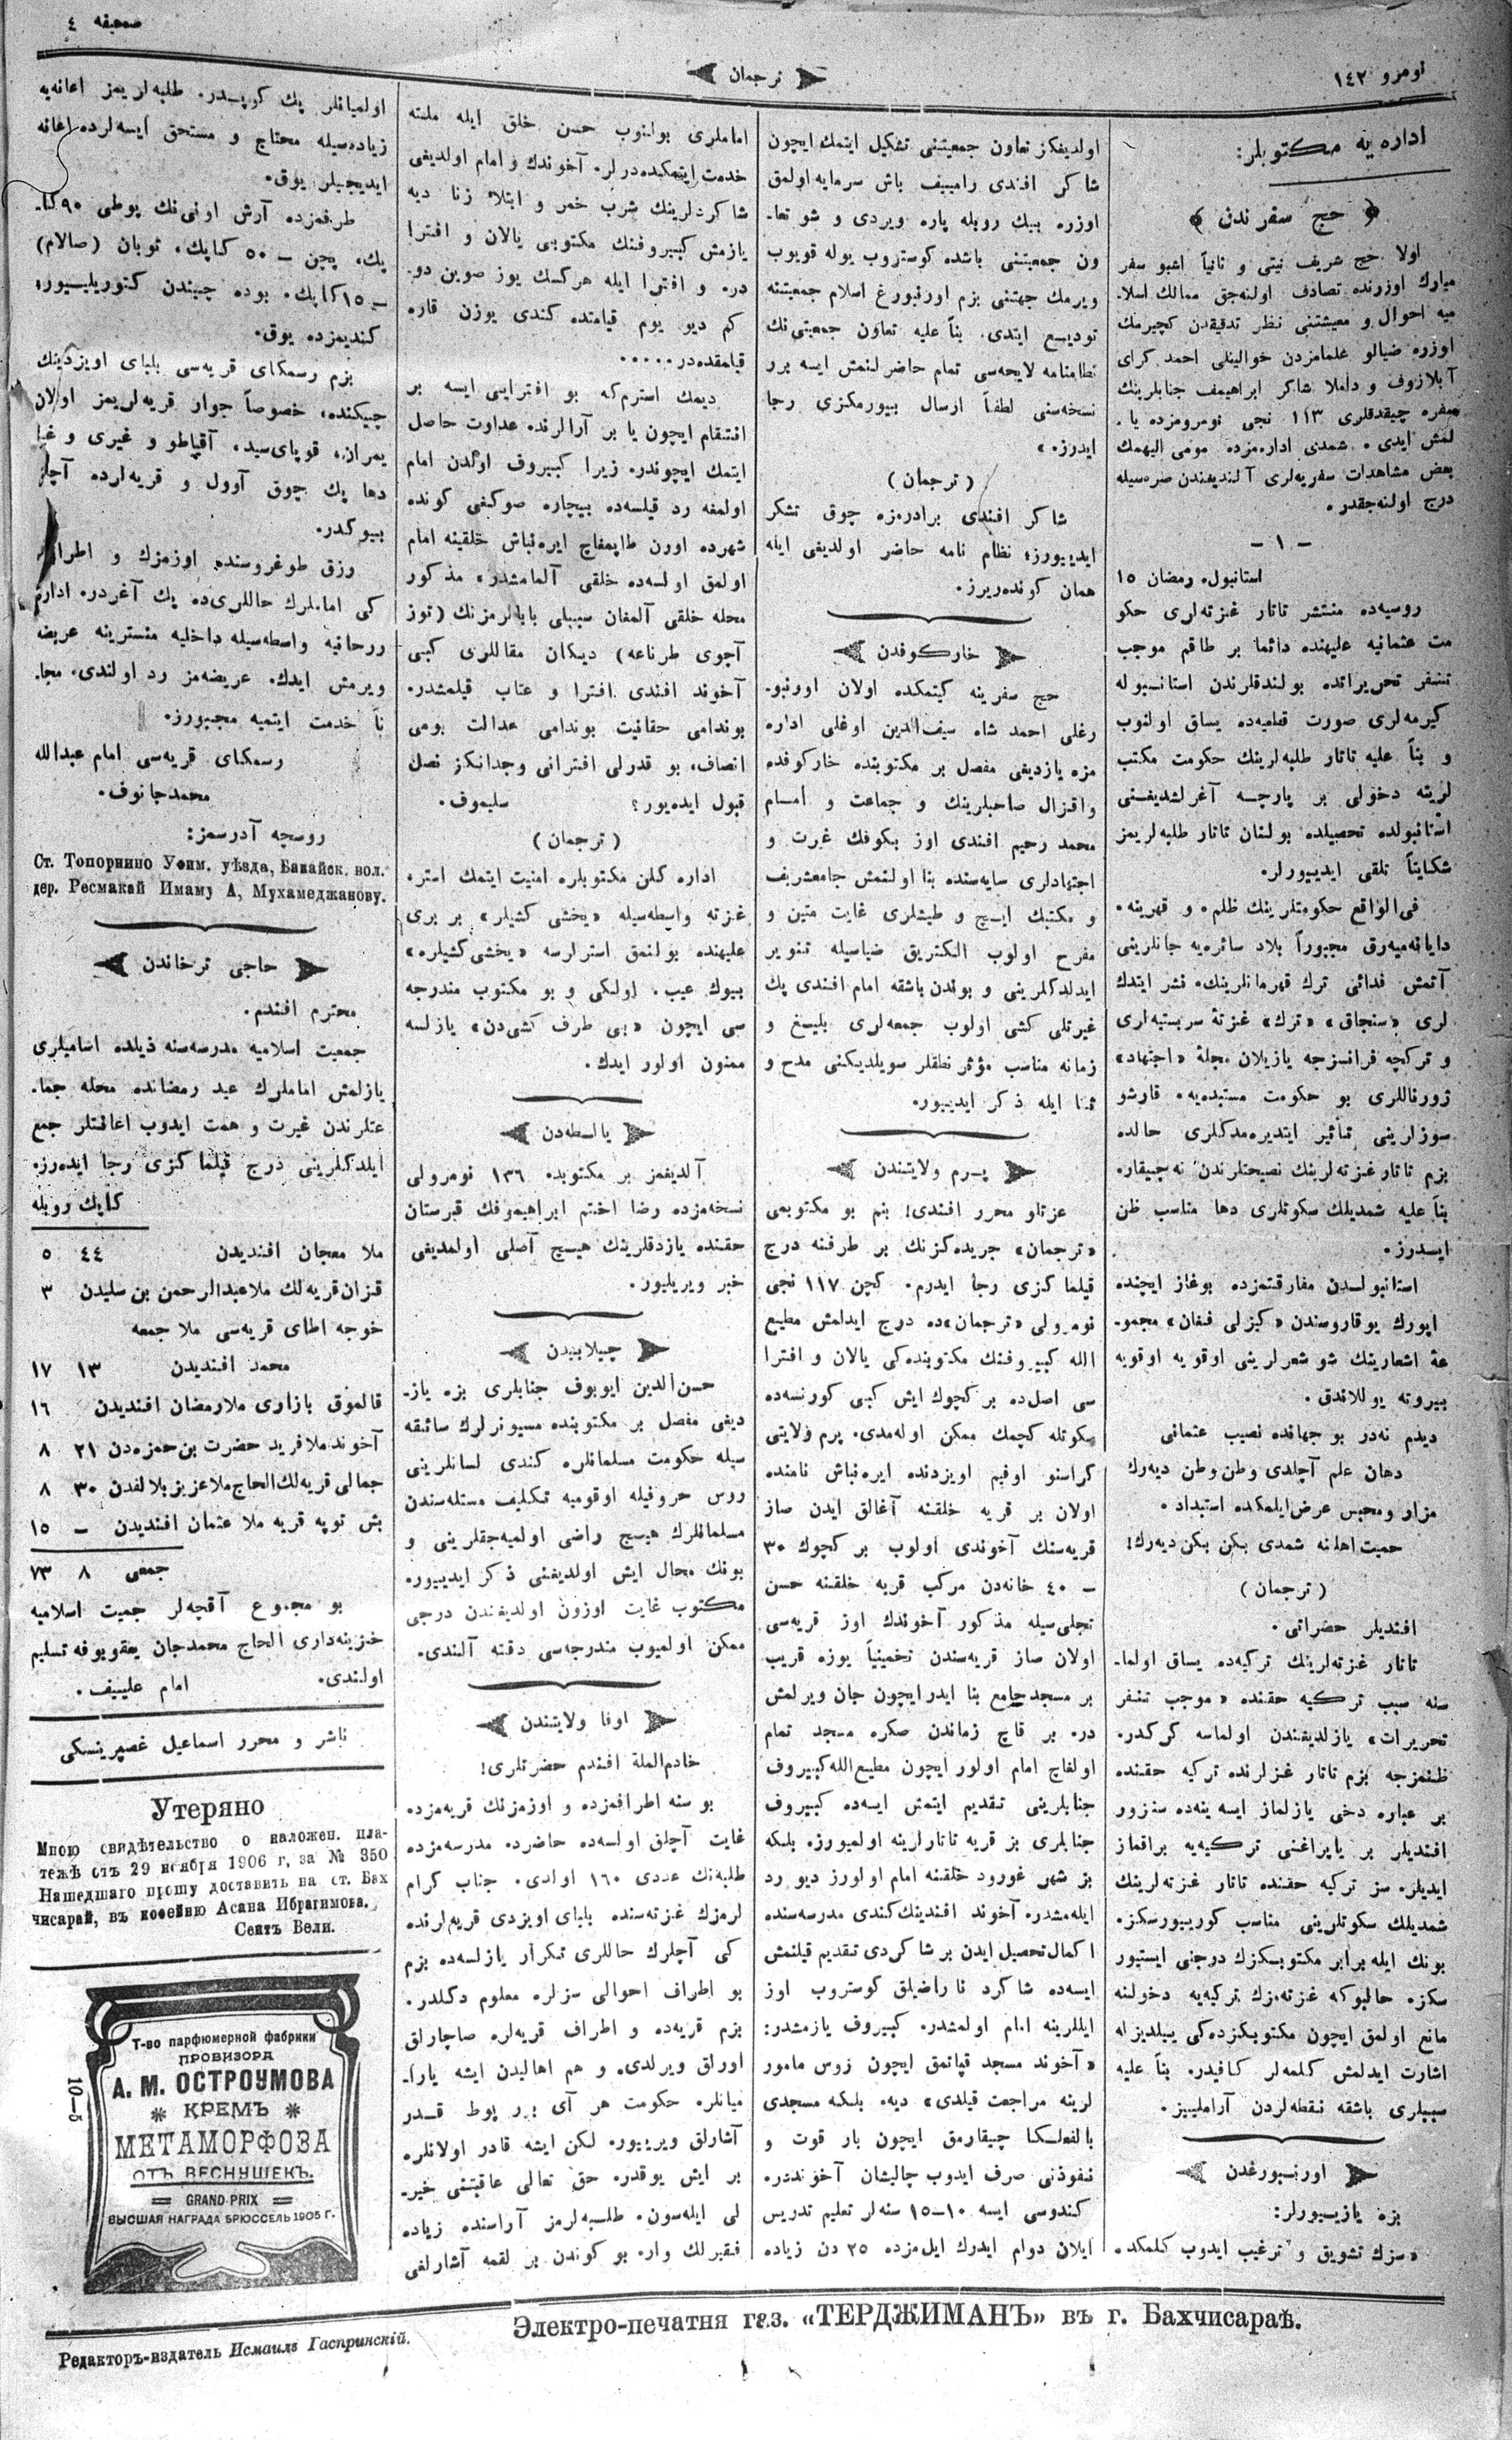 نومرو ١٤٢
ترجمان
صحيفه ٤
اداره‌يه مكتوبلر:
حج سفرندن
اولا حج شريف نيتى و ثانياً اشبو سفر
مبارك اوزرنده تصادف اولنه‌جق ممالك اسلا-
ميه احوال و معيشتنى نظر تدقيقدن كچيرمك
اوزره ضيالو علمامزدن خوالينلى احمد كراى
آبلازوف و داملا شاكر ابراهيمف جنابلرينك
سفره چيقدقلرى ١٣١ نجى نومرومزده يا-
لمش ايدى. شمدى اداره‌مزده مومى اليهمك
بعض مشاهدات سفريه‌لرى آلنديغندن صره‌سيله
درج اولنه‌جقدر.
— ١ —
استانبول، رمضان ١٥
روسيه‌ده منتشر تاتار غزته‌لرى حكو
مت عثمانيه عليهنده دائما بر طاقم موجب
تنفر تحريراتده بولندقلرندن استانبوله
كيرمه‌لرى صورت قطعيه‌ده يساق اولنوب
و بناً عليه تاتار طلبه‌لرينك حكومت مكتب
لرينه دخولى بر پارچه آغرلشديغنى
استانبولده تحصيلده بولنان تاتار طلبه‌لريمز
شكايتاً تلقى ايدييورلر.
فى الواقع حكومتلرينك ظلم، و قهرينه،
دايانه‌ميه‌رق مجبوراً بلاد سائره‌يه جانلرينى
آتمش فدائى ترك قهرمانلرينك، نشر ايتدك
لرى «سنجاق» «ترك» غزتۀ سربستيه‌لرى
و تركچه فرانسزجه يازيلان مجلۀ «اجتهاد»
ژورناللرى بو حكومت مستبده‌يه، قارشو
سوزلرينى تأثير ايتديره‌مدكلرى حالده
بزم تاتار غزته‌لرينك نصيحتلرندن نه چيقار،
بناً عليه شمديلك سكوتلرى دها مناسب ظن
ايدرز.
استانبولدن مفارقتمزده بوغاز ايچنده
اپورك يوقاروسندن «كيزلى فغان» مجمو-
عۀ اشعارينك شو شعرلرينى اوقويه اوقويه
بيروته يوللاندق.
ديدم نه‌در بو جهانده نصيب عثمانى
دهان علم آچلدى وطن وطن ديه‌رك
مزار و محبس عرض ايلمكده استبداد.
حميت اهلنه شمدى بكن بكن ديه‌رك!
(ترجمان)
افنديلر حضراتى.
تاتار غزته‌لرينك تركيه‌ده يساق اولما-
سنه سبب تركيه حقنده «موجب تنفر
تحريرات» يازلديغندن اولماسه كركدر.
ظنمزجه بزم تاتار غزلرنده تركيه حقنده
بر عباره دخى يازلماز ايسه ينه‌ده سنزور
افنديلر بر ياپراغنى تركيه‌يه براقماز
ايديلر. سز تركيه حقنده تاتار غزته‌لرينك
شمديلك سكوتلرينى مناسب كوريبورسكز.
بونك ايله برابر مكتوبكزك درجنى ايستيور
سكز. حالبوكه غزته‌مزك تركيه‌يه دخولنه
مانع اولمق ايچون مكتوبكزده‌كى ييلديزله
اشارت ايدلمش كلمه‌لر كافيدر. بناً عليه
سببلرى باشقه نقطه‌لردن آراملييز.
اورنبورغدن
بزه يازييورلر:
«سزك تشويق و ترغيب ايدوب كلمكده
اولديغكز تعاون جمعيتنى تشكيل ايتمك ايچون
شاكر افندى رامييف باش سرمايه اولمق
اوزره بيك روبله پاره ويردى و شو تعا-
ون جمعيتنى باشده كوستروب يوله قويوب
ويرمك جهتنى بزم اورنبورغ اسلام جمعيتنه
توديع ايتدى. بناً عليه تعاون جمعيتى‌نك
نظامنامه لايحه‌سى تمام حاضرلنمش ايسه برر
نسخه‌سنى لطفاً ارسال بيورمكزى رجا
ايدرز.»
(ترجمان)
شاكر افندى برادرمزه چوق تشكر
ايدييورز؛ نظام نامه حاضر اولديغى ايله
همان كونده‌ريرز.
خاركوفدن
حج سفرينه كيتمكده اولان اورنبو-
رغلى احمد شاه سيف‌الدين اوغلى اداره
مزه يازديغى مفصل بر مكتوبنده خاركوفده
واقزال صاحبلرينك و جماعت و امام
محمد رحيم افندى اوز بكوفك غيرت و
اجتهادلرى سايه‌سنده بنا اولنمش جامعشريف
و مكتبك ايچ و طيشلرى غايت متين و
مفرح اولوب الكتريق ضياسيله تنوير
ايدلدكلرينى و بوندن باشقه امام افندى پك
غيرتلى كشى اولوب جمعه‌لرى بليغ و
زمانه مناسب مؤثر نطقلر سويلديكنى مدح و
ثنا ايله ذكر ايدييور.
پرم ولايتندن
عزتلو محرر افندى! بنم بو مكتوبمى
«ترجمان» جريده‌كزنك بر طرفنه درج
قيلماكزى رجا ايدرم. كچن ١١٧ نجى
نومرولى «ترجمان»ده درج ايدلمش مطيع
الله كبيروفنك مكتوبنده‌كى يالان و افترا
سى اصل‌ده بر كچوك ايش كبى كورنسه‌ده
سكوتله كچمك ممكن اوله‌مدى. پرم ولايتى
كراسنو اوفيم اويزدنده ايره‌نباش نامنده
اولان بر قريه خلقنه آغالق ايدن صاز
قريه‌سنك آخوندى اولوب بر كچوك ٣٠
— ٤٠ خانه‌دن مركب قريه خلقنه حسن
تجلى‌سيله مذكور آخوندك اوز قريه‌سى
اولان صاز قريه‌سندن تخميناً يوزه قريب
بر مسجد جامع بنا ايدر ايچون جان ويرلمش
در. بر قاچ زماندن صكره مسجد تمام
اولغاچ امام اولور ايچون مطيع‌الله كبيروف
جنابلرينى تقديم ايتمش ايسه‌ده كبيروف
جنابلرى بز قريه تاتارلرينه اولميورز، بلمكه
بز شهر غورود خلقنه امام اولورز ديو رد
ايله‌مشدر. آخوند افندينك كندى مدرسه‌سنده
اكمال تحصيل ايدن بر شاكردى تقديم قيلنمش
ايسه‌ده شاكرد نا راضيلق كوستروب اوز
ايللرينه امام اولمشدر. كبيروف يازمشدر:
«آخوند مسجد قپاتمق ايچون روس مامور
لرينه مراجعت قيلدى» ديه. بلكه مسجدى
بالفعلكا چيقارمق ايچون بار قوت و
نفوذنى صرف ايدوب چاليشان آخوندر.
كندوسى ايسه ١٠—١٥ سنه‌لر تعليم تدريس
ايلان دوام ايدرك ايل‌مزده ٢٥ دن زياده
اماملرى بولنوب حسن خلق ايله ملته
خدمت ايتمكده‌درلر. آخوندك و امام اولديغى
شاكردلرينك شرب خمر و ابتلاء زنا ديه
يازمش كبيروفنك مكتوبى يالان و افترا
در. و افترا ايله هركسك يوز صوين دو-
كم ديو يوم قيامتده كندى يوزن قاره
قيامقده‌در.....
ديمك استرم‌كه بو افترايى ايسه بر
انتقام ايچون يا بر آرالرنده عداوت حاصل
ايتمك ايچوندر. زيرا كبيروف اولدن امام
اولمغه رد قيلسه‌ده بيچاره صوكغى كونده
شهرده اورن طاپمغاچ ايره‌نباش خلقينه امام
اولمق اولسه‌ده خلقى آلمامشدر، مذكور
محله خلقى آلمغان سببلى بابالرمزنك (توز
آجوى طرناعه) ديكان مقاللرى كبى
آخوند افندى افترا و عتاب قيلمشدر.
بوندامى حقانيت بوندامى عدالت بومى
انصاف، بو قدرلى افترانى وجدانكز نصل
قبول ايده‌يور؟ سليموف.
(ترجمان)
اداره كلن مكتوبلره امنيت ايتمك استر.
غزته واسطه‌سيله «يخشى كشيلر» بر برى
عليهنده بولنمق استرلرسه «يخشى كشيلره»
بيوك عيب. اولكى و بو مكتوب مندرجه
سى ايچون «بى طرف كشى‌دن» يازلسه
ممنون اولور ايدك.
يالطه‌دن
آلديغمز بر مكتوبده ١٣٦ نومرولى
نسخه‌مزده رضا اختم ابراهيموفك قبرستان
حقنده يازدقلرينك هيچ آصلى اولمديغى
خبر ويريليور.
چيلابيدن
حسن‌الدين ايوبوف جنابلرى بزه ياز-
ديغى مفصل بر مكتوبنده مسيونرلرك سائقه
سيله حكومت مسلمانلره كندى لسانلرينى
روس حروفيله اوقوميه تكليف مسئله‌سندن
مسلمانلرك هيچ راضى اولميه‌جقلرينى و
بونك محال ايش اولديغنى ذكر ايدييور.
مكتوب غايت اوزون اولديغندن درجى
ممكن اولميوب مندرجه‌سى دقته آلندى.
اوفا ولايتندن
خادم‌الملة افندم حضرتلرى!
بو سنه اطرافمزده و اوزمزنك قريه‌مزده
غايت آچلق اولسه‌ده حاضرده مدرسه‌مزده
طلبه‌نك عددى ١٦٠ اولدى. جناب كرام
لرمزك غزته‌سنده بلباى اويزدى قريه‌لرنده
كى آچلرك حاللرى تكرار يازلسه‌ده بزم
بو اطراف احوالى سزلره معلوم دكلدر.
بزم قريه‌ده و اطراف قريه‌لره صاچارلق
اورلق ويرلدى. و هم اهاليدن ايشه يارا-
ميانلره حكومت هر آى برر پوط قدر
آشارلق ويرييور. لكن ايشه قادر اولانلره
بر ايش يوقدر. حق تعالى عاقبتنى خير-
لى ايله‌سون. طلبه‌لرمز آراسنده زياده
فقيرلك وار. بو كوندن بر لقمه آشارلغى
اولميانلر پك كوپدر. طلبه‌لريمز اعانه‌يه
زياده‌سيله محتاج و مستحق ايسه‌لرده اعانه
ايديجيلر يوق.
طرفمزده آرش اونى‌نك پوطى ٩٠ كا-
پك، پچن — ٥٠ كاپك، توبان (صالام)
— ١٥ كاپك. بوده چيتدن كتوريلييور؛
كنديمزده يوق.
بزم رسمكاى قريه‌سى بلباى اويزدينك
چيكنده، خصوصاً جوار قريه‌لريمز اولان
يمران، قوپاى‌سيد، آقباطو و غيرى و غيا
دها پك چوق آوول و قريه‌لرده آچلق
بيوكدر.
رزق طوغروسنده اوزمزك و اطراف
كى اماملرك حاللرى‌ده پك آغردر. اداره
روحانيه واسطه‌سيله داخليه منسترينه عريضه
ويرمش ايدك. عريضه‌مز رد اولندى. مجا-
ناً خدمت ايتميه مجبورز.
رسمكاى قريه‌سى امام عبدالله
محمدجانوف.
روسچه آدرسمز:
Ст. Топорнино Уфим. уѣзда, Бакайск. вол.
дер. Ресмакай Имаму А, Мухамеджанову.
حاجى ترخاندن
محترم افندم.
جمعيت اسلاميه مدرسه‌سنه ذيلده اساميلرى
يازلمش اماملرك عيد رمضانده محله جما-
عتلرندن غيرت و همت ايدوب اعانتلر جمع
ايلدكلرينى درج قيلماكزى رجا ايده‌رز.
كاپك روبله
ملا معجان افنديدن ٤٤ ٥
قزان قريه‌لك ملا عبدالرحمن بن سليدن ٣
خوجه اطاى قريه‌سى ملا جمعه
محمد افنديدن ١٣ ١٧
قالموق بازارى ملا رمضان افنديدن ١٦
آخوند ملا فريد حضرت بن حمزه‌دن ٢١ ٨
جمالى قريه‌لك الحاج ملا عزيز بلالفدن ٣٠ ٨
بش توپه قريه ملا عثمان افنديدن — ١٥
جمعى ٨ ٧٣
بو مجموع آقچه‌لر جميت اسلاميه
خزينه‌دارى الحاج محمدجان يعقوبوفه تسليم
اولندى. امام علييف.
ناشر و محرر اسماعيل غصپرينسكى
Утеряно
Мною свидѣтельство о наложен. пла-
тежѣ отъ 29 ноября 1906 г, за № 350
Нашедшаго прошу доставить на ст. Бах
чисарай, въ кофейню Асана Ибрагимова.
Сеитъ Вели.
Т-во парфюмерной фабрики
ПРОВИЗОРА
А. М. ОСТРОУМОВА
КРЕМЪ
МЕТАМОРФОЗА
ОТЪ ВЕСНУШЕКЪ.
GRAND-PRIX
ВЫСШАЯ НАГРАДА БРЮССЕЛЬ 1905 Г.
10—5
Электро-печатня газ. «ТЕРДЖИМАНЪ» въ г. Бахчисараѣ.
Редакторъ-издатель Исмаилъ Гаспринскій.